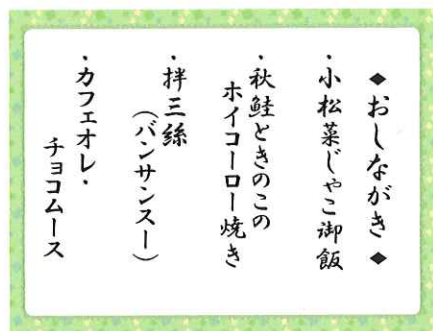 ◆おしながき◆
・小松菜じゃこ御飯
・秋鮭ときのこの
ホイコーロー焼き
・拌三絲
(バンサンスー)
・カフェオレ・
チョコムース